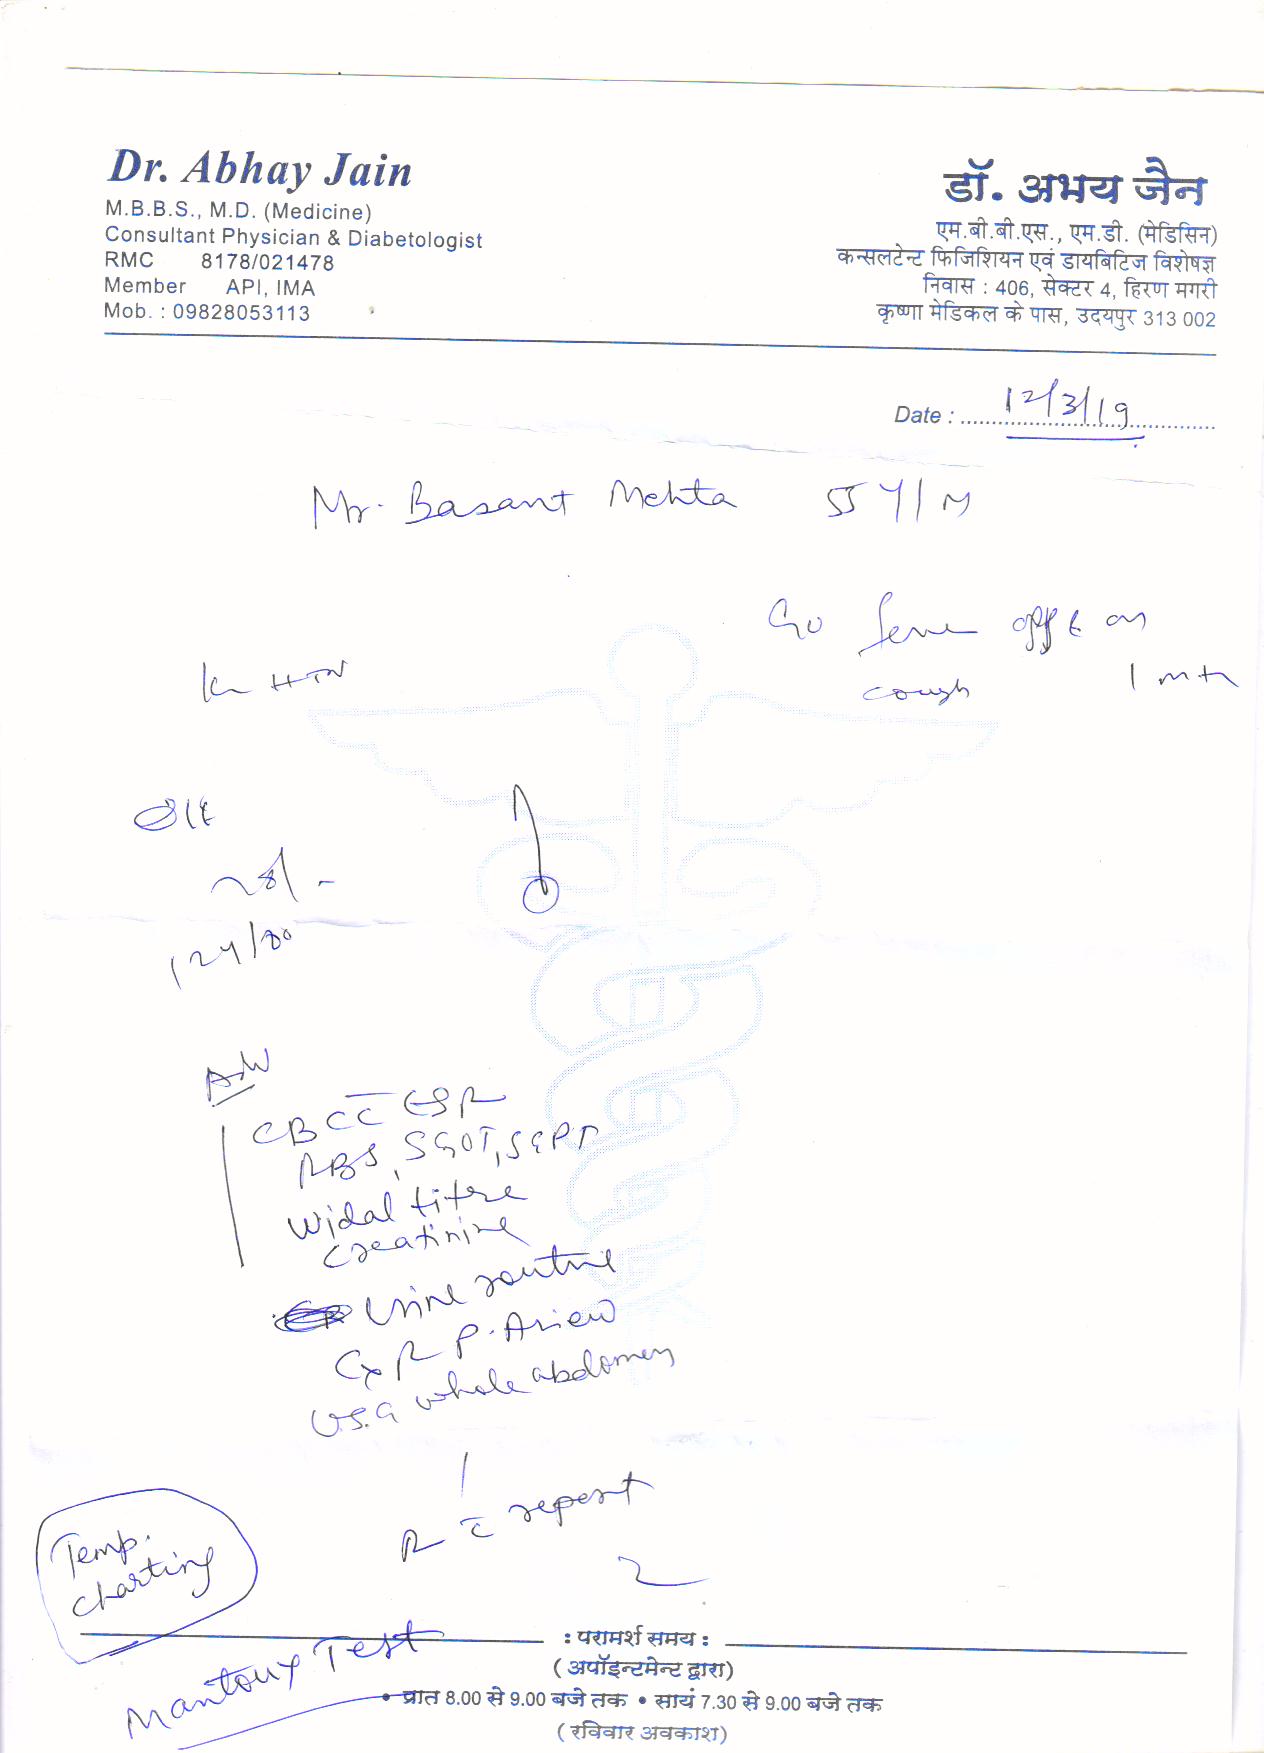 Dr. Abhay Jain
M.B.B.S., M.D. (Medicine)
Consultant Physician & Diabetologist
RMC 8178/021478
Member API, IMA
Mob. : 09828053113
डॉ. अभय जैन
एम.बी.बी.एस., एम.डी. (मेडिसिन)
कन्सलटेन्ट फिजिशियन एवं डायबिटिज विशेषज्ञ
निवास : 406, सेक्टर 4, हिरण मगरी
कृष्णा मेडिकल के पास, उदयपुर 313 002
Date : 12/3/19
Mr. Basant Mehta 55 Y/M
fever off & on
cough 1 mth
HTN
O/E
124/80
Adv
CBC c̄ ESR
RBS, SGOT, SGPT
Widal titre
Creatinine
Urine routine
CxR P.A view
U.S.G whole abdomen
R c̄ report
Temp.
charting
Mantoux Test
: परामर्श समय :
(अपॉइन्टमेन्ट द्वारा)
• प्रात 8.00 से 9.00 बजे तक • सायं 7.30 से 9.00 बजे तक
(रविवार अवकाश)